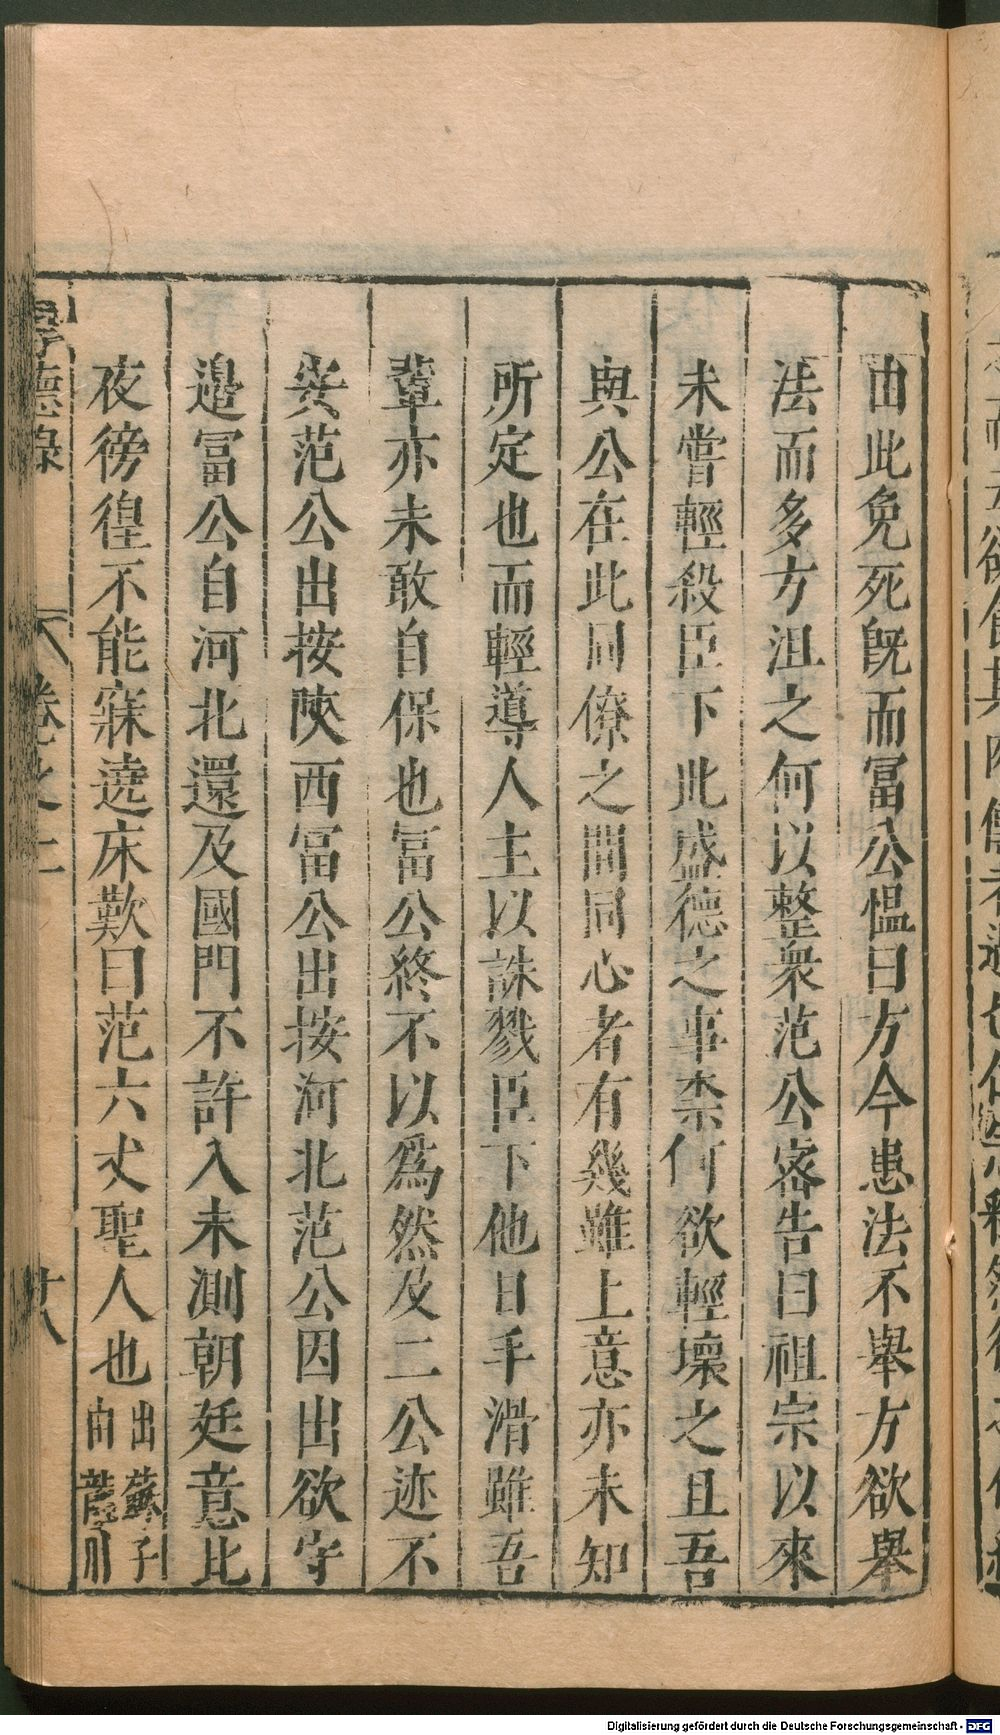 由此免死旣而冨公慍曰方今患法不舉方欲舉
法而多方沮之何以整衆范公密告曰祖宗以來
未嘗輕殺臣下此盛德之事柰何欲輕壞之且吾
與公在此同僚之間同心者有幾雖上意亦未知
所定也而輕導人主以誅戮臣下他日手滑雖吾
輩亦未敢自保也冨公終不以爲然及二公迹不
安范公出按陝西冨公出按河北范公因出欲守
邉冨公自河北還及國門不許入未測朝廷意比
夜徬徨不能寐遶床歎曰范六丈聖人也 出蘇子由龍川
厚德錄 卷之上 廿八
Digitalisierung gefördert durch die Deutsche Forschungsgemeinschaft - DFG